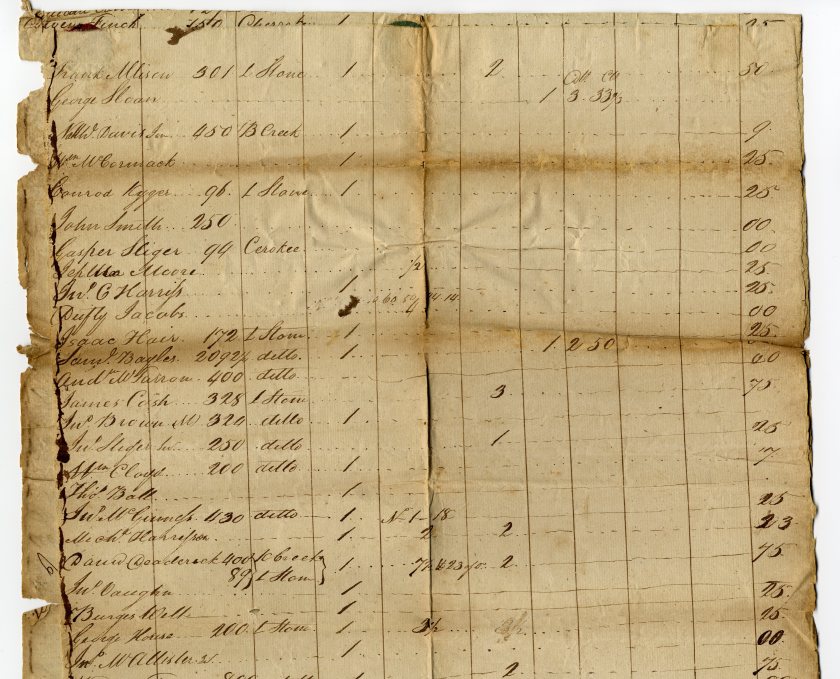 Finch 150 Cherrokee 1 25
Frank Allison 301 L Stone 1 2 50
George Sloan 1 3 33⅓
Nathl. Davis Jun 450 B Creek 1 9
Wm McCormack 1 25
Conrod Kegger 96 L Stone 1 25
John Smith 250 00
Gasper Sliger 94 Cerokee 00
Jeptha Moore ½ 25
Jno. C Harriss 1 25
Dufty Jacobs 00
Isaac Hair 172 L Stone 1 25
Saml. Bayles 2092½ ditto 1 1 2 50 60
Andw McFarron 400 ditto
James Cash 328 L Stone 3 75
Jno. Brown M 320 ditto 1
Jno. Sliger Sr. 250 ditto 1 25
Wm Cloyd 200 ditto 1 17
Thos. Ball 1
Jno. McGinness 430 ditto 1 No 1-18 25
Michl. Harrison 1 2 2 23
David Deaderick 400 K Creek 1 2 75
89 L Stone
Jno. Vaughn 1 25
Burges Wells 1 25
George House 200 L Stone 1 3½ 00
Jno. McAllister 1
2 75